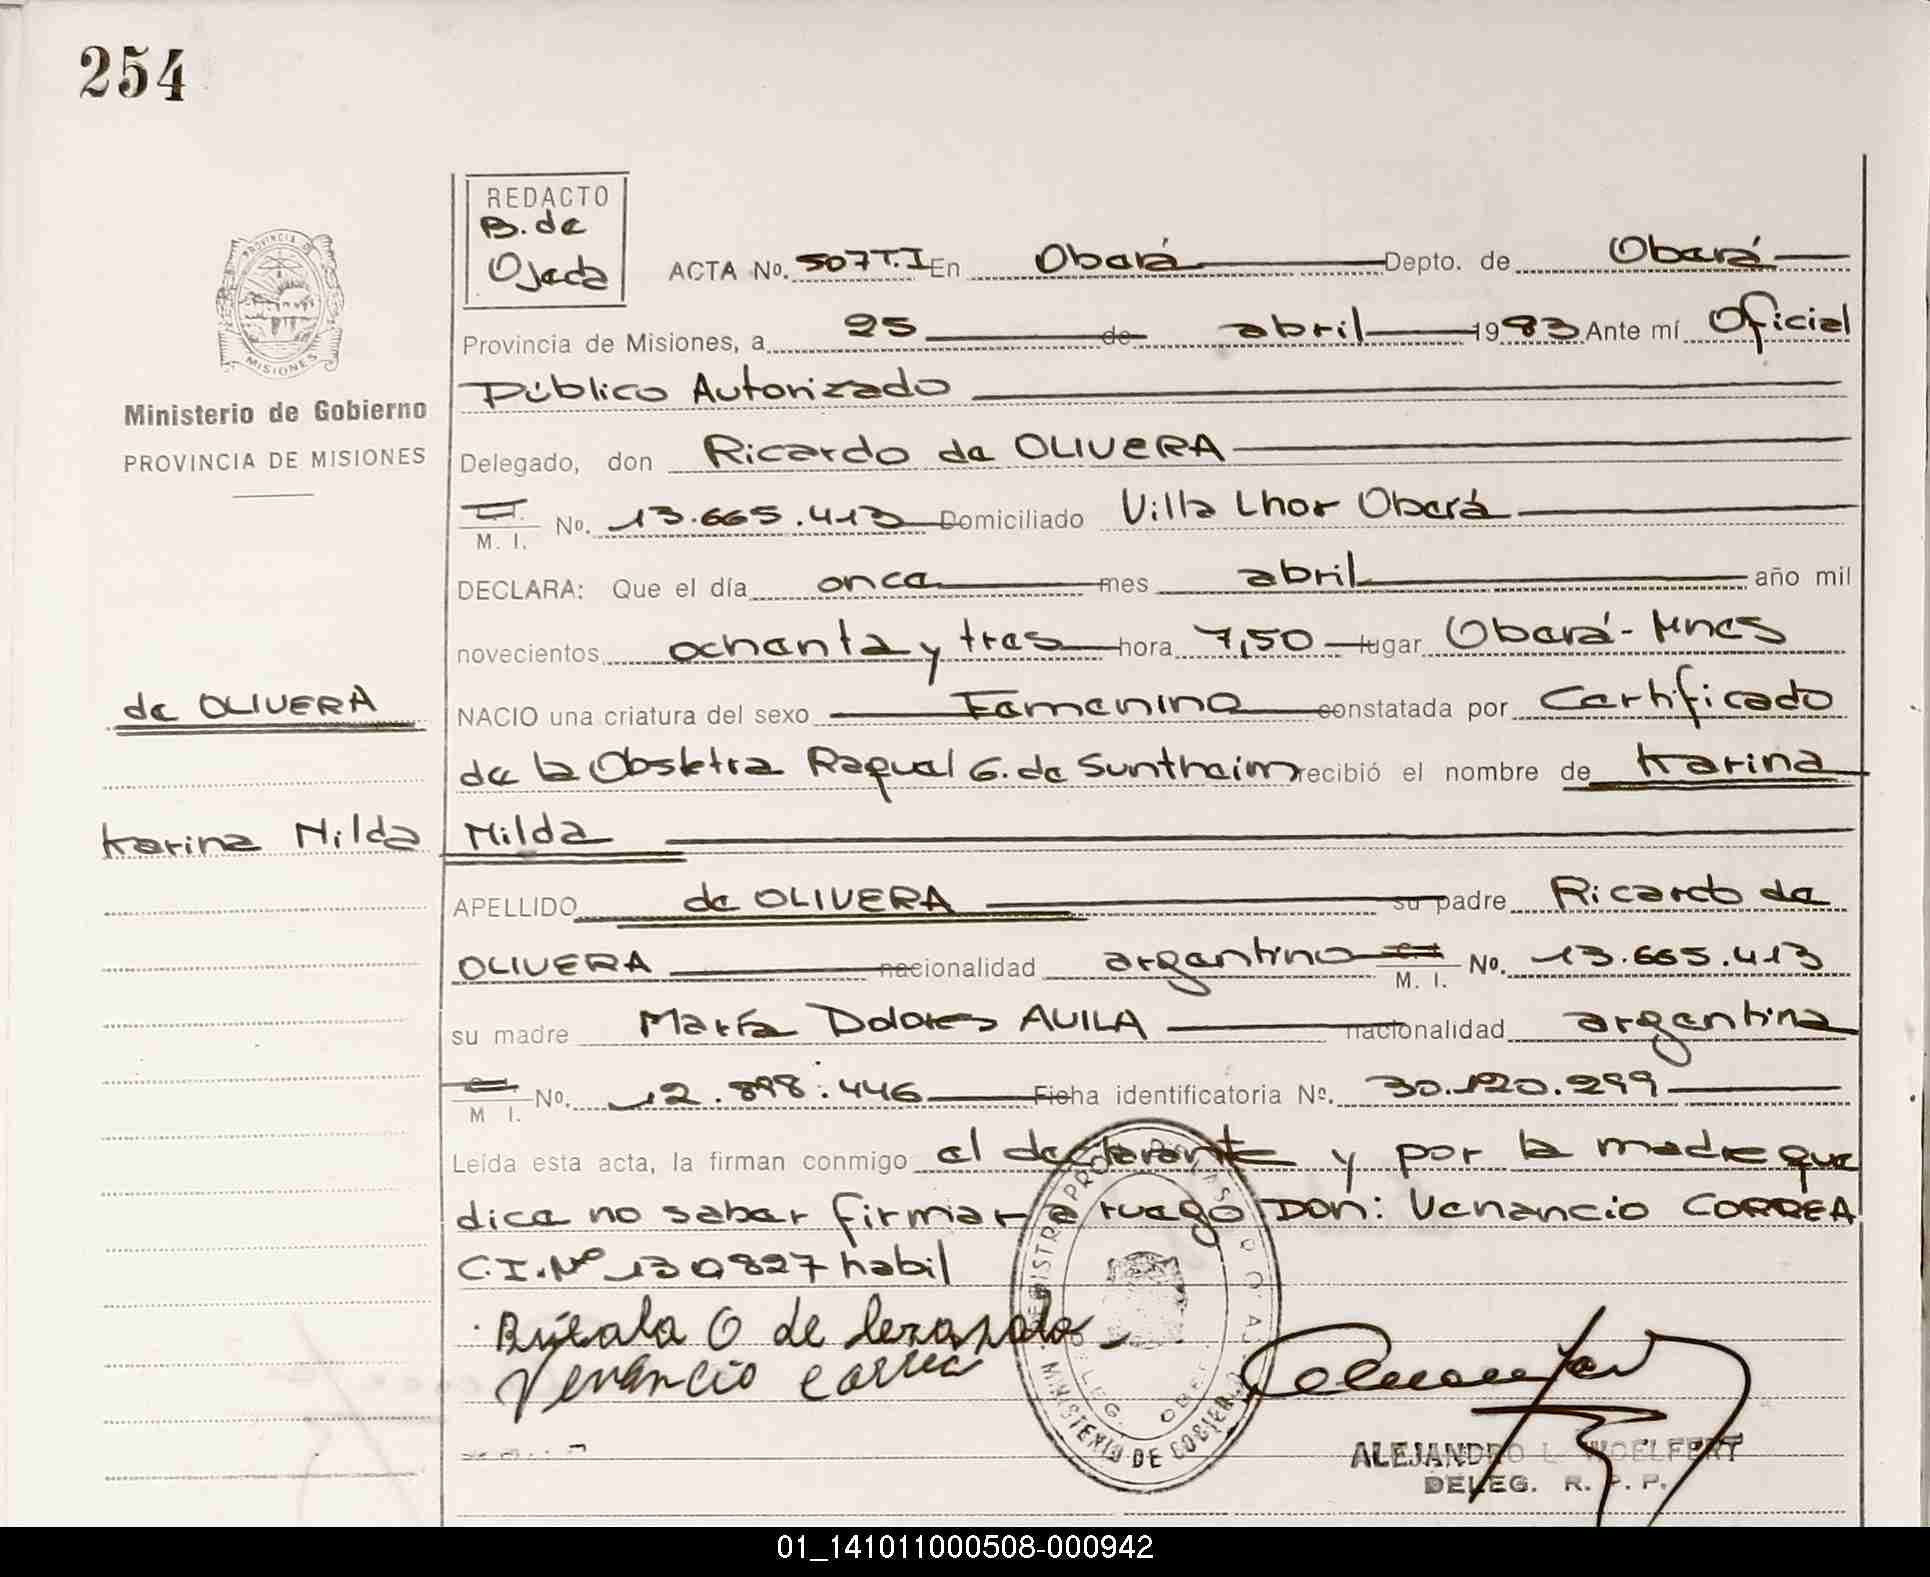 254
REDACTO
B. de
Ojeda
ACTA No. 507 T. I En Oberá Depto. de Oberá
Provincia de Misiones, a 25 de abril 1983 Ante mí Oficial
Público Autorizado
Ministerio de Gobierno
PROVINCIA DE MISIONES
Delegado, don Ricardo de OLIVERA
M. I. No. 13.665.413 Domiciliado Villa Lhor Oberá
DECLARA: Que el día once mes abril año mil
novecientos ochenta y tres hora 7,50 lugar Oberá - Mnes
de OLIVERA
NACIO una criatura del sexo Femenino constatada por Certificado
de la Obstetra Raquel G. de Suntheim recibió el nombre de Karina
Karina Nilda
Nilda
APELLIDO de OLIVERA su padre Ricardo de
OLIVERA nacionalidad argentino M. I. No. 13.665.413
su madre María Dolores AVILA nacionalidad argentina
M. I. No. 12.898.446 Ficha identificatoria No. 30.120.299
Leída esta acta, la firman conmigo el declarante y por la madre que
dice no saber firmar a ruego Don: Venancio CORREA
C.I. Nº 130827 habil
Venancio Correa
MINISTERIO DE GOBIERNO
ALEJANDRO L. WOELFERT
DELEG. R. P. P.
01_141011000508-000942